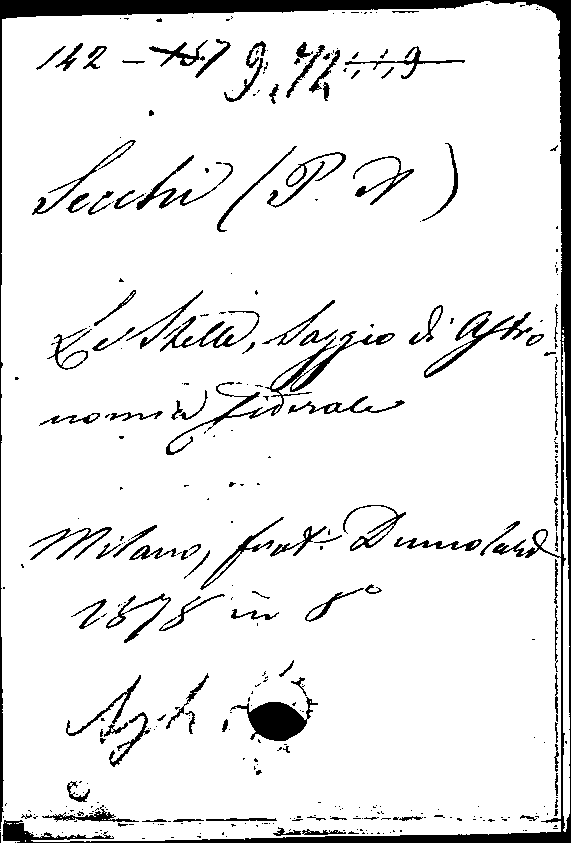 142 – 157 9.72 1,1,9
Secchi (P. A)
Le Stelle, Saggio di Astro-
nomia siderale
Milano, frat: Dumolard
1878 in 8°